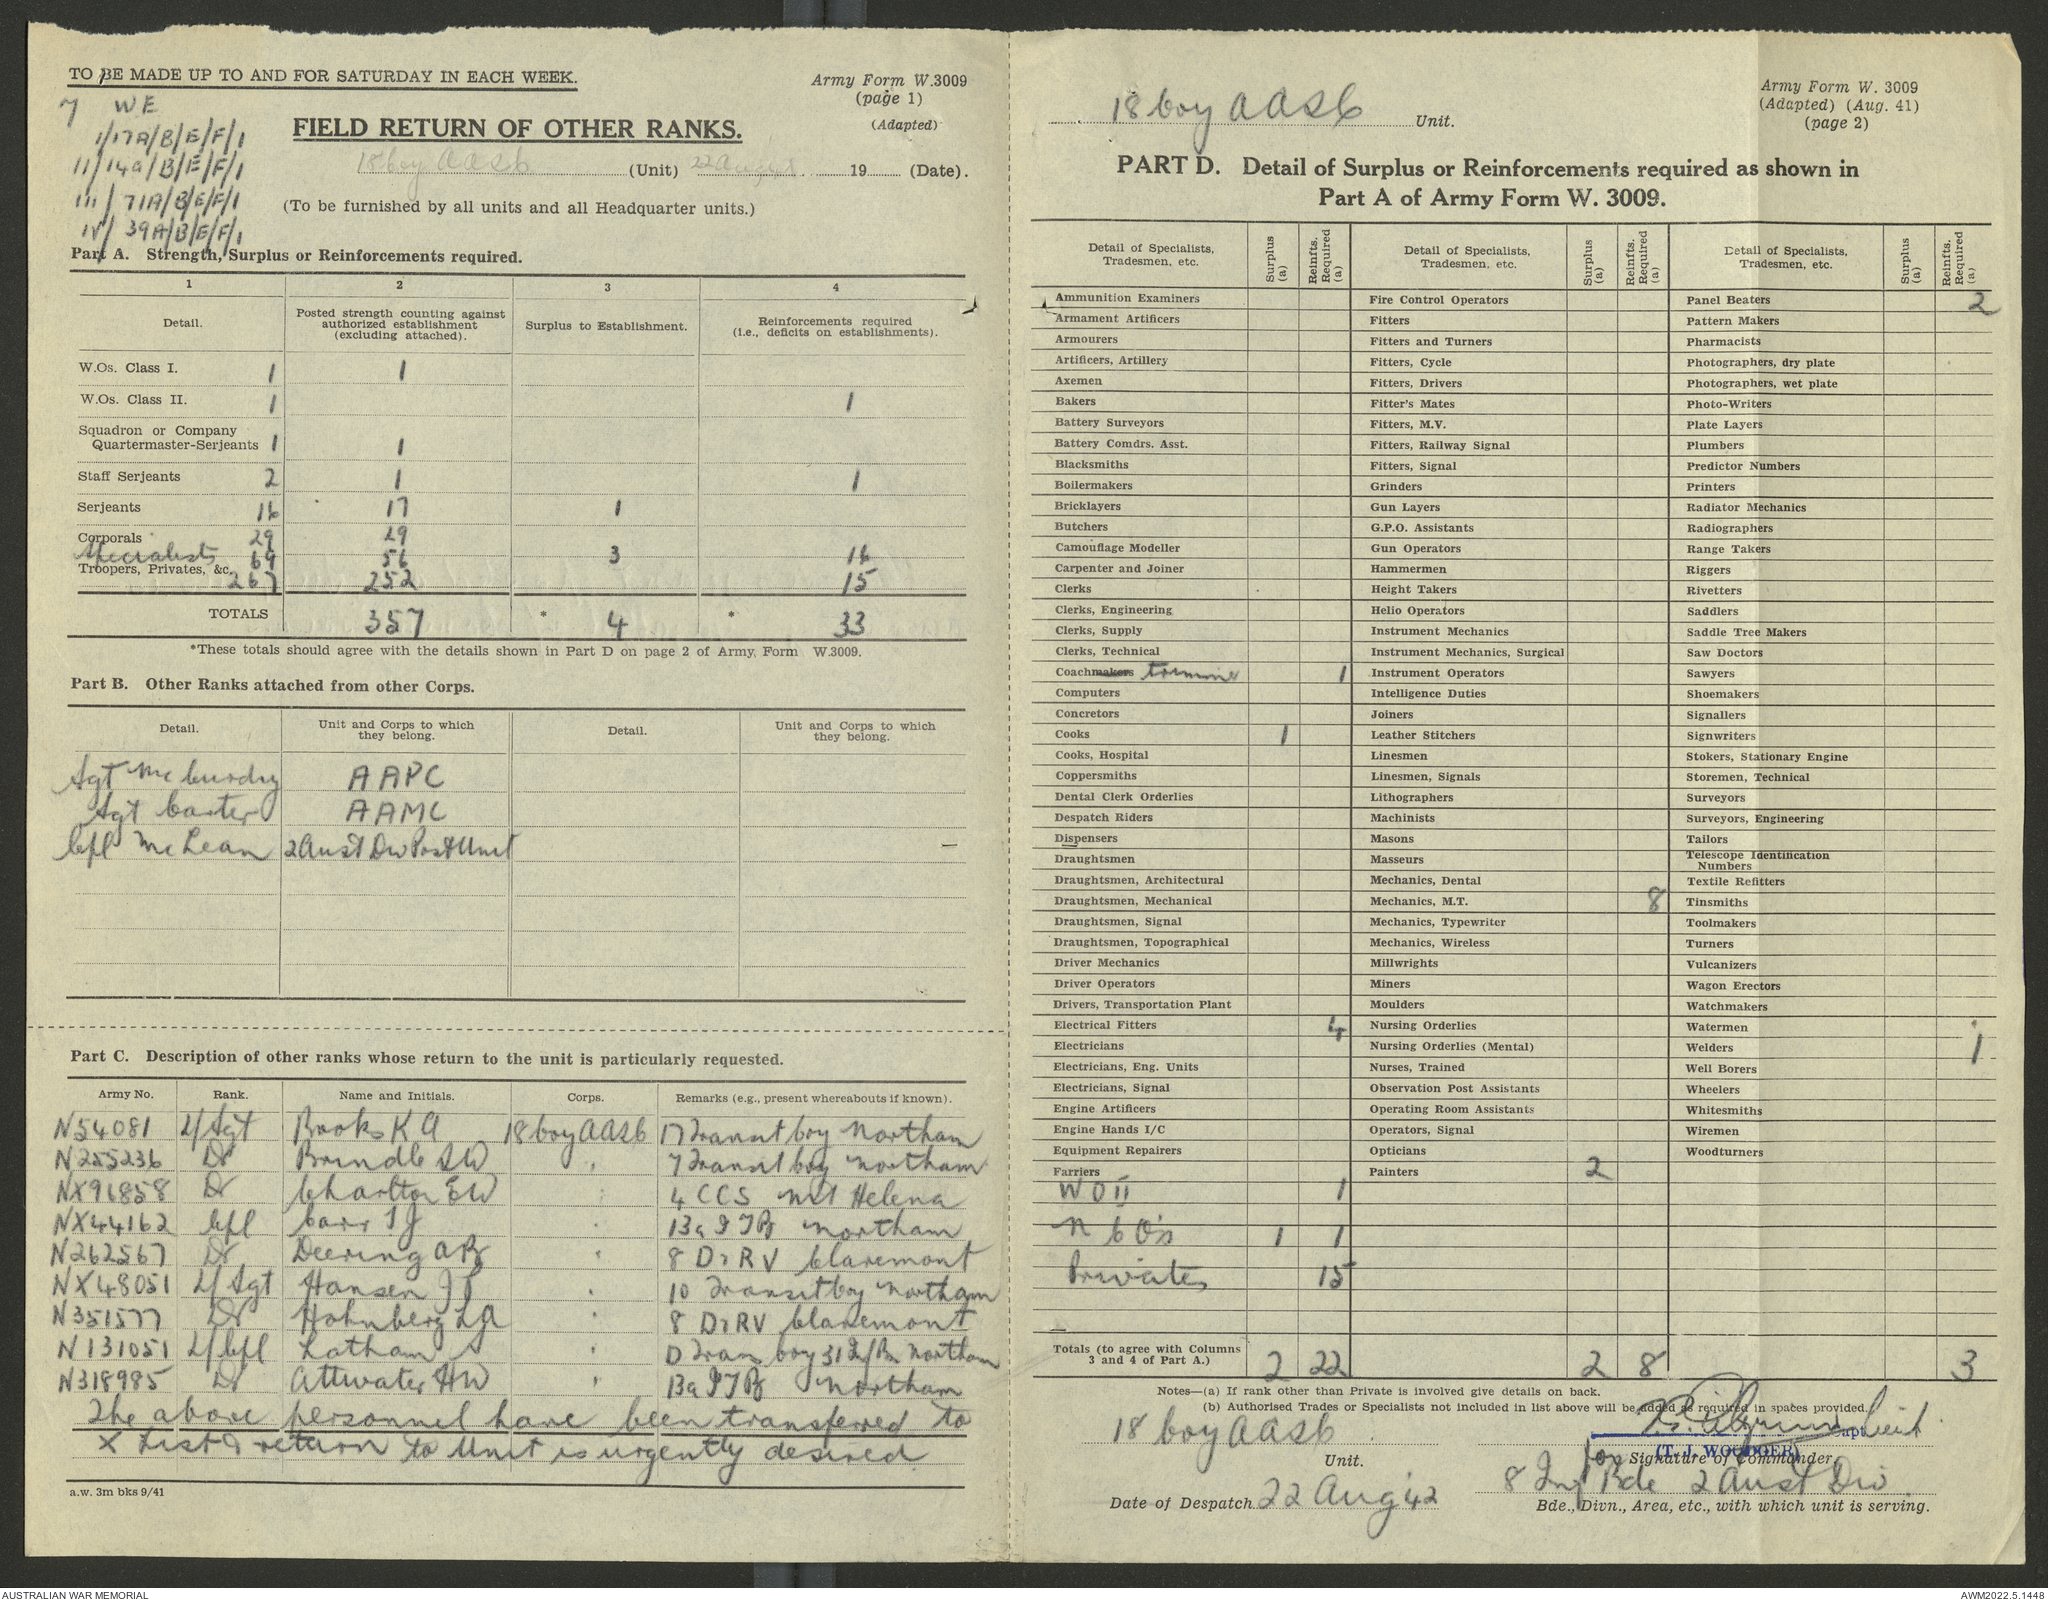 TO BE MADE UP TO AND FOR SATURDAY IN EACH WEEK.
Army Form W.3009
(page 1)
(Adapted)
7 WE
1/17A/B/E/F/1
11/14A/B/E/F/1
111/71A/B/E/F/1
IV/39A/B/E/F/1
FIELD RETURN OF OTHER RANKS.
18 Coy AASC (Unit) 22 Aug 19 (Date).
(To be furnished by all units and all Headquarter units.)
Part A. Strength, Surplus or Reinforcements required.
1 2 3 4
Detail.
Posted strength counting against authorized establishment (excluding attached).
Surplus to Establishment.
Reinforcements required (i.e., deficits on establishments).
W.Os. Class I. 1 1
W.Os. Class II. 1 1
Squadron or Company
Quartermaster-Serjeants 1 1
Staff Serjeants 2 1 1
Serjeants 16 17 1
Corporals 29 29
Specialists 69 56 3 16
Troopers, Privates, &c. 267 252 15
TOTALS 357 * 4 * 33
*These totals should agree with the details shown in Part D on page 2 of Army, Form W.3009.
Part B. Other Ranks attached from other Corps.
Detail. Unit and Corps to which they belong. Detail. Unit and Corps to which they belong.
Sgt McCurdy AAPC
Sgt Carter AAMC
Cpl McLean 2 Aust Div Post Unit
Part C. Description of other ranks whose return to the unit is particularly requested.
Army No. Rank. Name and Initials. Corps. Remarks (e.g., present whereabouts if known).
N54081 L/Sgt Brooks K A 18 Coy AASC 17 Transit Coy Northam
N255236 Dr Brindle S W " 7 Transit Coy Northam
NX96858 Dr Charlton E W " 4 CCS Mt Helena
NX44162 Cpl Carr T J " 13a ITB Northam
N262567 Dr Deering A B " 8 D & RV Claremont
NX48051 L/Sgt Hansen J P " 10 Transit Coy Northam
N351577 Dr Hohnberg L A " 8 D & RV Claremont
N131051 L/Cpl Latham S " D Trans Coy 31 Inf Bn Northam
N318985 Dr Attwater H W " 13a ITB Northam
The above personnel have been transferred to
X List & return to Unit is urgently desired
a.w. 3m bks 9/41
18 Coy AASC Unit.
Army Form W. 3009
(Adapted) (Aug. 41)
(page 2)
PART D. Detail of Surplus or Reinforcements required as shown in
Part A of Army Form W. 3009.
Detail of Specialists, Tradesmen, etc. Surplus (a) Reinfts. Required (a)
Detail of Specialists, Tradesmen, etc. Surplus (a) Reinfts. Required (a)
Detail of Specialists, Tradesmen, etc. Surplus (a) Reinfts. Required (a)
Ammunition Examiners Fire Control Operators Panel Beaters 2
Armament Artificers Fitters Pattern Makers
Armourers Fitters and Turners Pharmacists
Artificers, Artillery Fitters, Cycle Photographers, dry plate
Axemen Fitters, Drivers Photographers, wet plate
Bakers Fitter's Mates Photo-Writers
Battery Surveyors Fitters, M.V. Plate Layers
Battery Comdrs. Asst. Fitters, Railway Signal Plumbers
Blacksmiths Fitters, Signal Predictor Numbers
Boilermakers Grinders Printers
Bricklayers Gun Layers Radiator Mechanics
Butchers G.P.O. Assistants Radiographers
Camouflage Modeller Gun Operators Range Takers
Carpenter and Joiner Hammermen Riggers
Clerks Height Takers Rivetters
Clerks, Engineering Helio Operators Saddlers
Clerks, Supply Instrument Mechanics Saddle Tree Makers
Clerks, Technical Instrument Mechanics, Surgical Saw Doctors
Coachmakers trimmer 1 Instrument Operators Sawyers
Computers Intelligence Duties Shoemakers
Concretors Joiners Signallers
Cooks 1 Leather Stitchers Signwriters
Cooks, Hospital Linesmen Stokers, Stationary Engine
Coppersmiths Linesmen, Signals Storemen, Technical
Dental Clerk Orderlies Lithographers Surveyors
Despatch Riders Machinists Surveyors, Engineering
Dispensers Masons Tailors
Draughtsmen Masseurs Telescope Identification Numbers
Draughtsmen, Architectural Mechanics, Dental Textile Refitters
Draughtsmen, Mechanical Mechanics, M.T. 8 Tinsmiths
Draughtsmen, Signal Mechanics, Typewriter Toolmakers
Draughtsmen, Topographical Mechanics, Wireless Turners
Driver Mechanics Millwrights Vulcanizers
Driver Operators Miners Wagon Erectors
Drivers, Transportation Plant Moulders Watchmakers
Electrical Fitters 4 Nursing Orderlies Watermen
Electricians Nursing Orderlies (Mental) Welders 1
Electricians, Eng. Units Nurses, Trained Well Borers
Electricians, Signal Observation Post Assistants Wheelers
Engine Artificers Operating Room Assistants Whitesmiths
Engine Hands I/C Operators, Signal Wiremen
Equipment Repairers Opticians Woodturners
Farriers Painters 2
WO II 1
NCO's 1 1
Privates 15
Totals (to agree with Columns 3 and 4 of Part A.) 2 22 2 8 3
Notes—(a) If rank other than Private is involved give details on back.
(b) Authorised Trades or Specialists not included in list above will be added as required in spaces provided.
18 Coy AASC
Unit.
Capt Lieut
(T. J. WOODGER)
for Signature of Commander
8 Inf Bde 2 Aust Div
Date of Despatch 22 Aug '42
Bde., Divn., Area, etc., with which unit is serving.
AUSTRALIAN WAR MEMORIAL
AWM2022.5.1448